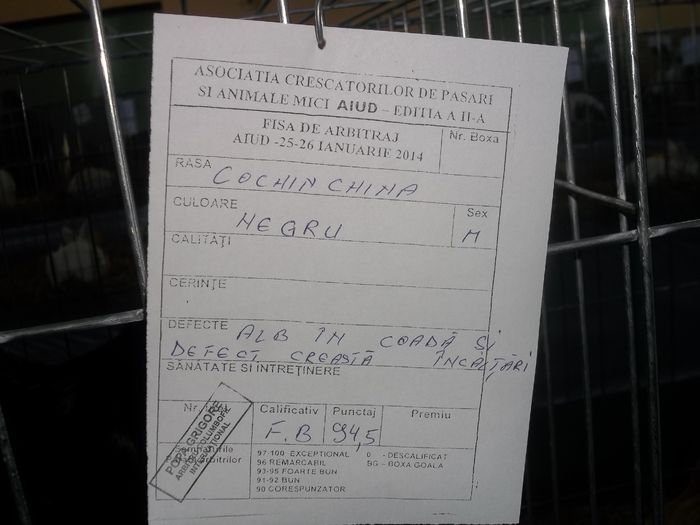 ASOCIATIA CRESCATORILOR DE PASARI
SI ANIMALE MICI AIUD – EDITIA A II-A
FISA DE ARBITRAJ
AIUD -25-26 IANUARIE 2014
Nr. Boxa
RASA COCHINCHINA
CULOARE NEGRU
Sex
M
CALITĂȚI
CERINȚE
DEFECTE ALB ÎN COADĂ ȘI
DEFECT CREASTĂ ÎNCĂȚĂRI
SĂNĂTATE SI INTREȚINERE
Nr.
Calificativ
F.B
Punctaj
94,5
Premiu
POPA GRIGORE
ARBITRU COLUMBOFIL
INTERNATIONAL
Semnaturile
arbitrilor
97-100 EXCEPTIONAL 0 - DESCALIFICAT
96 REMARCABIL BG – BOXA GOALA
93-95 FOARTE BUN
91-92 BUN
90 CORESPUNZATOR